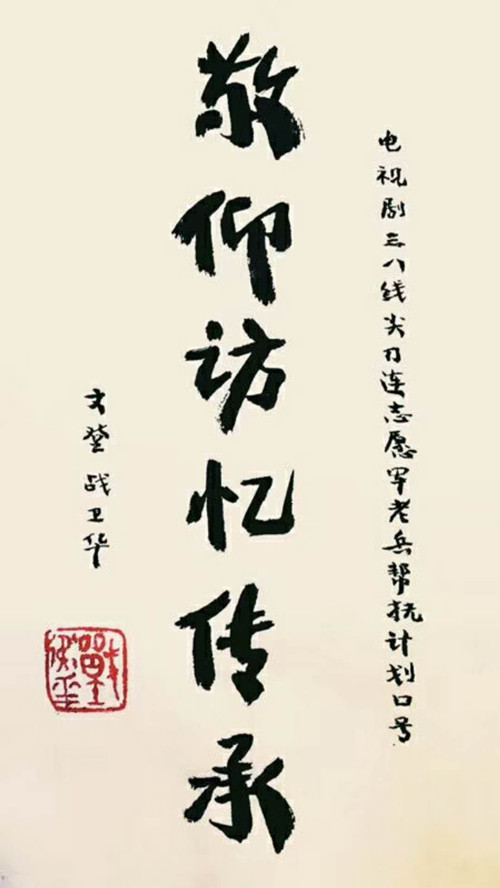 电视剧三八线尖刀连志愿军老兵帮抚计划口号
敬仰访忆传承
文登战卫华